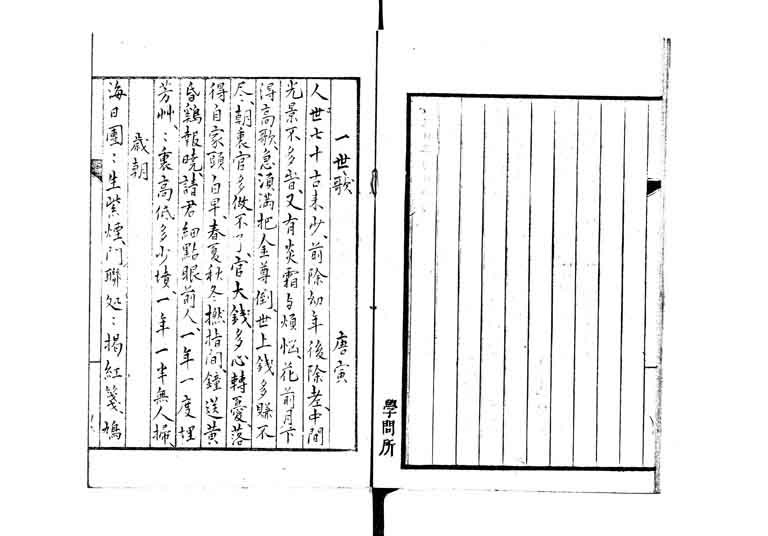 學問所
一世歌 唐寅
人世七十古来少、前除幼年後除老、中間
光景不多旹、又有炎霜与煩惱、花前月下
得高歌、急須滿把金尊倒、世上錢多賺不
尽、朝裏官多做不了、官大錢多心轉憂、落
得自家頭白早、春夏秋冬撚指間、鐘送黃
昏鷄報曉、請君細點眼前人、一年一度埋
芳艸、〻裏高低多少墳、一年一半無人掃、
歲朝
海日團〻生紫煙、門聯処〻揭紅箋、鳩